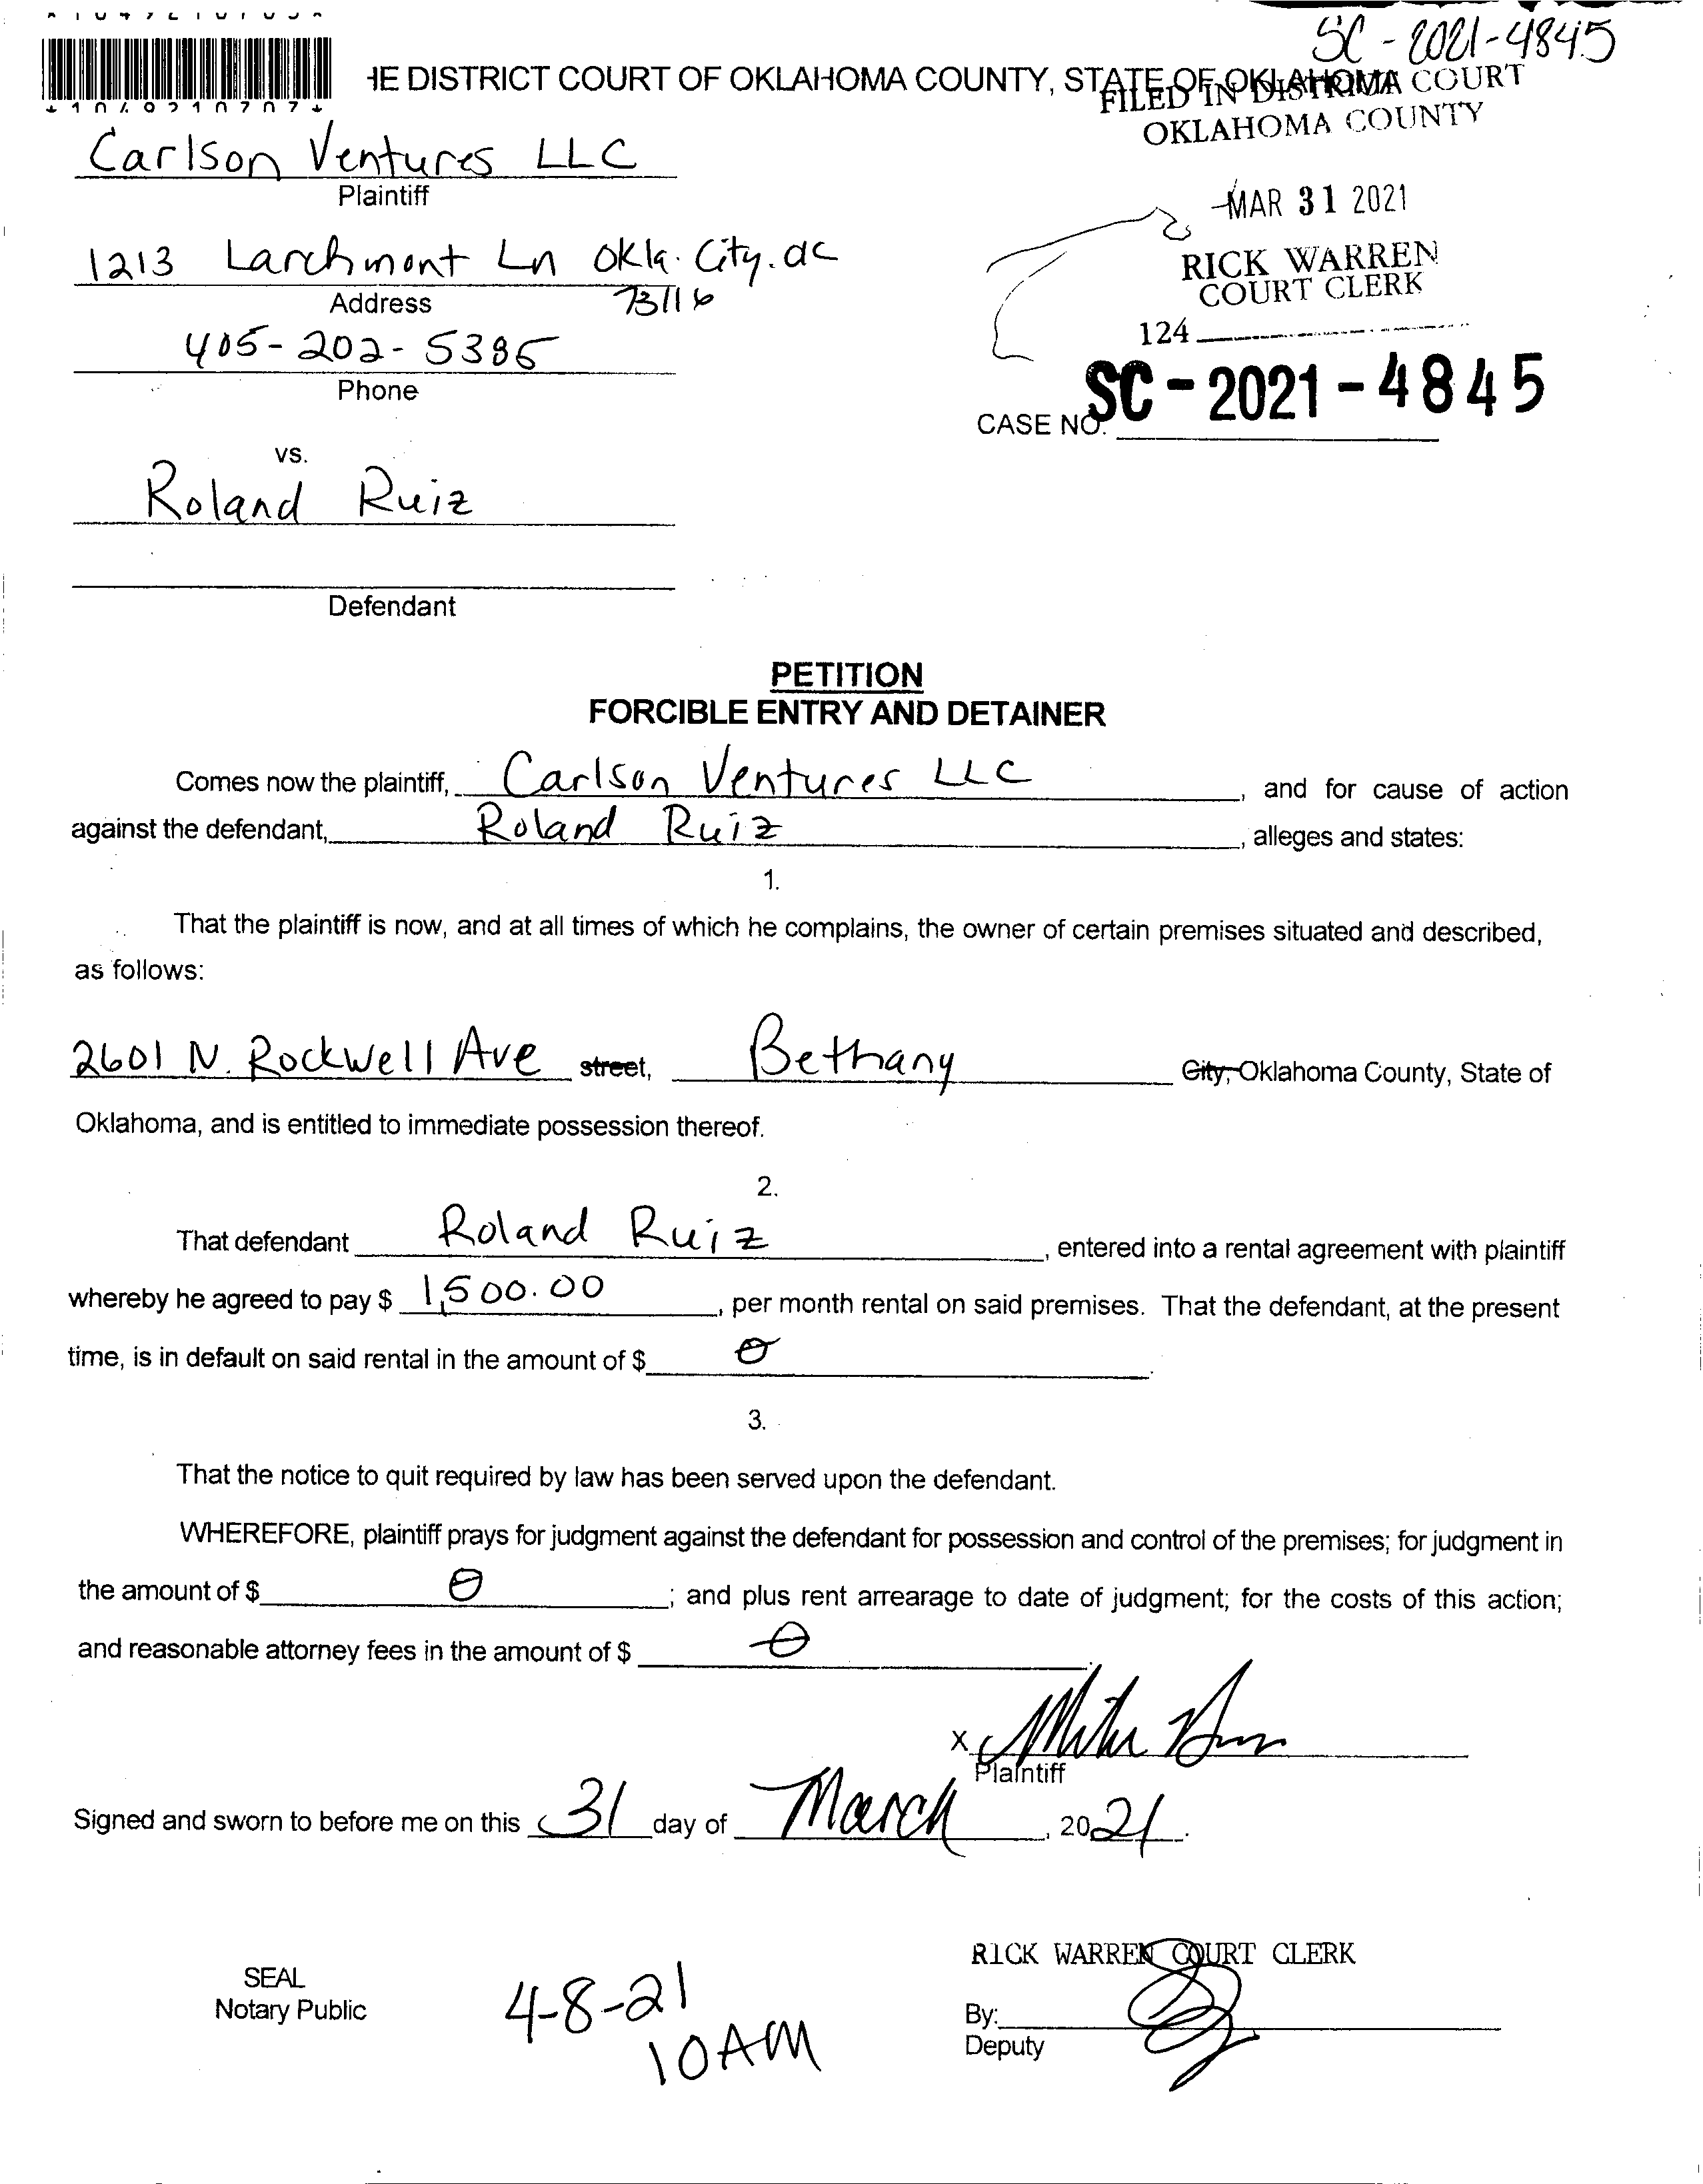 SC-2021-4845
HE DISTRICT COURT OF OKLAHOMA COUNTY, STATE OF OKLAHOMA
FILED IN DISTRICT COURT
OKLAHOMA COUNTY
Carlson Ventures LLC
Plaintiff
MAR 31 2021
1213 Larchmont Ln Okla. City. OK
73116
Address
RICK WARREN
COURT CLERK
124
405-202-5385
Phone
CASE NO. SC-2021-4845
vs.
Roland Ruiz
Defendant
PETITION
FORCIBLE ENTRY AND DETAINER
Comes now the plaintiff, Carlson Ventures LLC, and for cause of action
against the defendant, Roland Ruiz, alleges and states:
1.
That the plaintiff is now, and at all times of which he complains, the owner of certain premises situated and described,
as follows:
2601 N. Rockwell Ave street, Bethany City, Oklahoma County, State of
Oklahoma, and is entitled to immediate possession thereof.
2.
That defendant Roland Ruiz, entered into a rental agreement with plaintiff
whereby he agreed to pay $ 1,500.00, per month rental on said premises. That the defendant, at the present
time, is in default on said rental in the amount of $ 0.
3.
That the notice to quit required by law has been served upon the defendant.
WHEREFORE, plaintiff prays for judgment against the defendant for possession and control of the premises; for judgment in
the amount of $ 0; and plus rent arrearage to date of judgment; for the costs of this action;
and reasonable attorney fees in the amount of $ 0.
X
Plaintiff
Signed and sworn to before me on this 31 day of March, 2021.
RICK WARREN COURT CLERK
SEAL
Notary Public
4-8-21
10AM
By:
Deputy